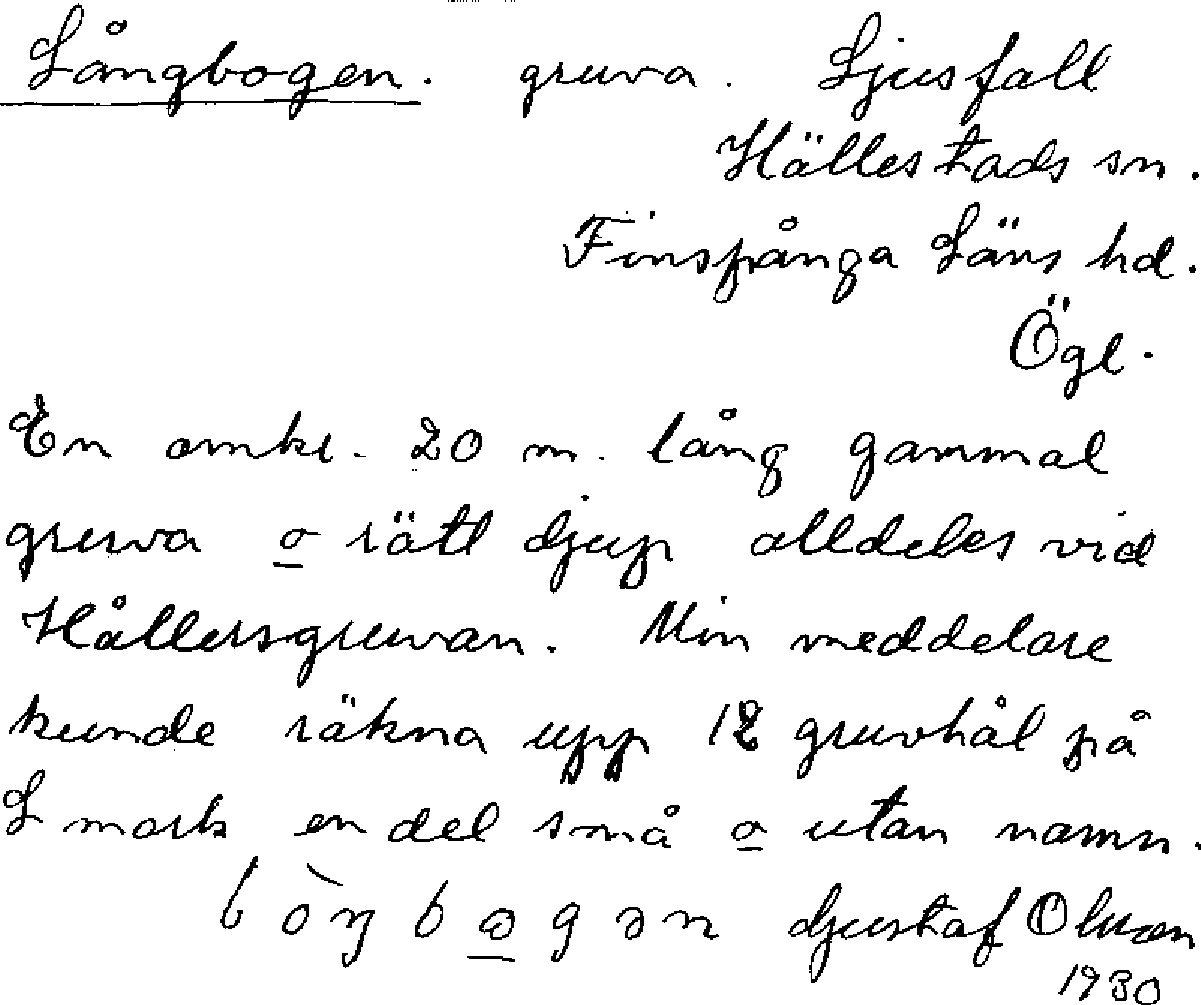 Långbogen. gruva. Ljusfall
Hällestads sn.
Finspånga Läns hd.
Ögl.
En omkr. 20 m. lång gammal
gruva o rätt djup alldeles vid
Hållersgruvan. Min meddelare
kunde räkna upp 12 gruvhål på
L mark en del små o utan namn.
Gustaf
1930